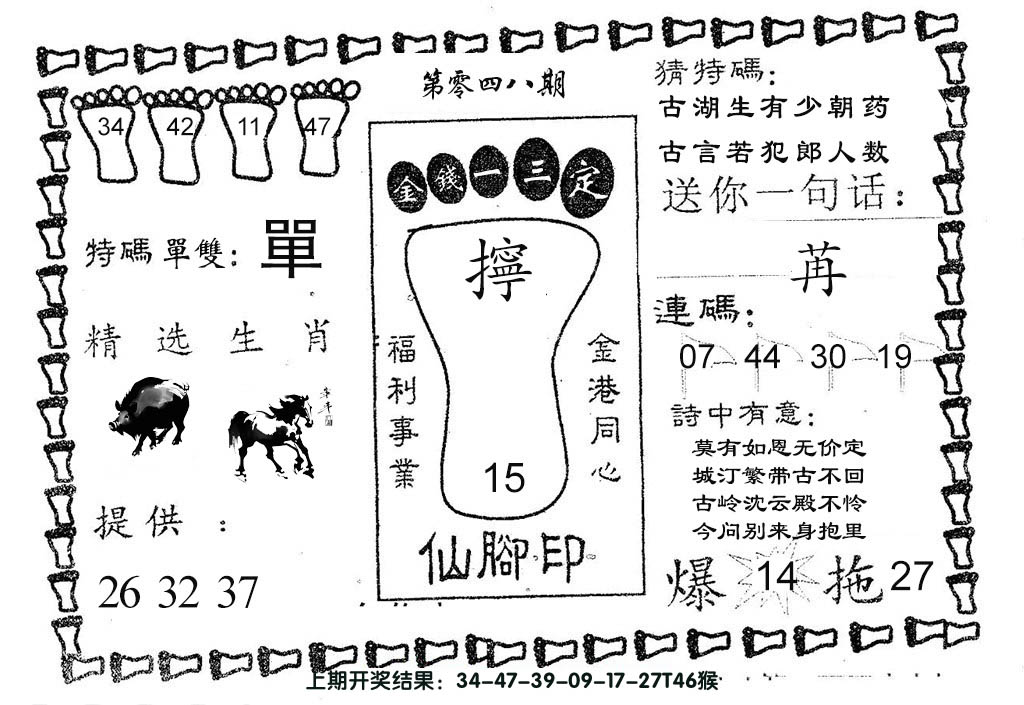 第零四八期
34 42 11 47
特碼單雙：單
精选生肖
提供：
26 32 37
金錢一三定
擰
福利事業
金港同心
15
仙腳印
猜特碼：
古湖生有少朝药
古言若犯郎人数
送你一句话：
苒
連碼：
07 44 30 19
詩中有意：
莫有如恩无价定
城汀繁带古不回
古岭沈云殿不怜
今问别来身抱里
爆 14 拖 27
上期开奖结果：34-47-39-09-17-27T46猴